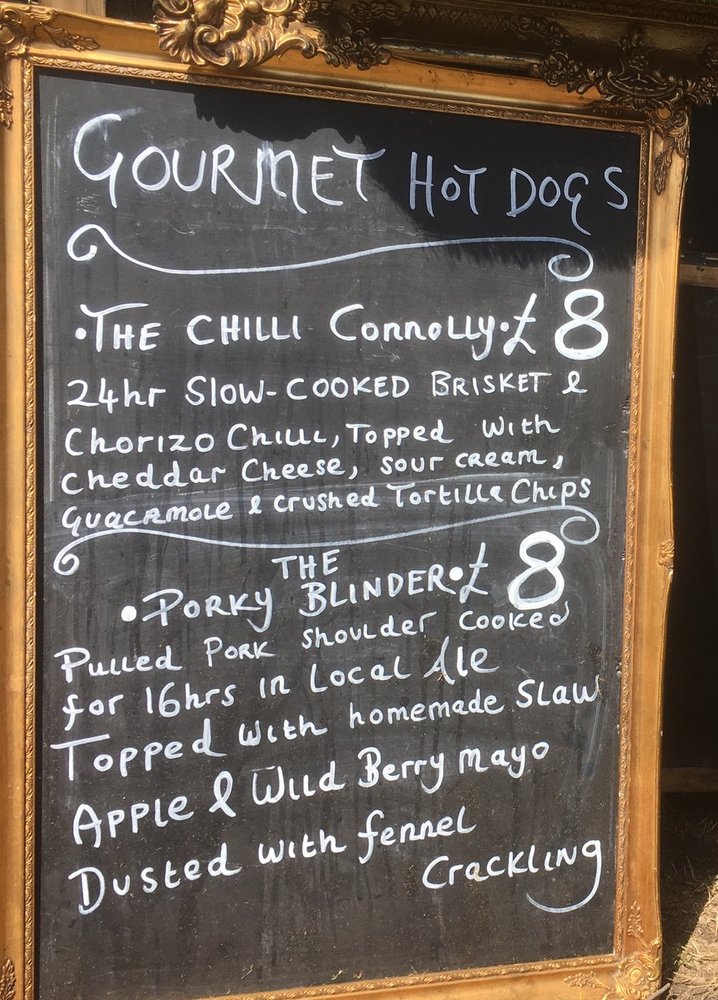 GOURMET HOT DOGS
•THE CHILLI Connolly•£8
24hr SLOW-COOKED BRISKET &
Chorizo Chilli, Topped with
Cheddar Cheese, sour cream,
Guacamole & crushed Tortilla Chips
THE
•PORKY BLINDER•£8
Pulled Pork shoulder cooked
for 16hrs in Local Ale
Topped with homemade Slaw
Apple & Wild Berry mayo
Dusted with fennel
Crackling